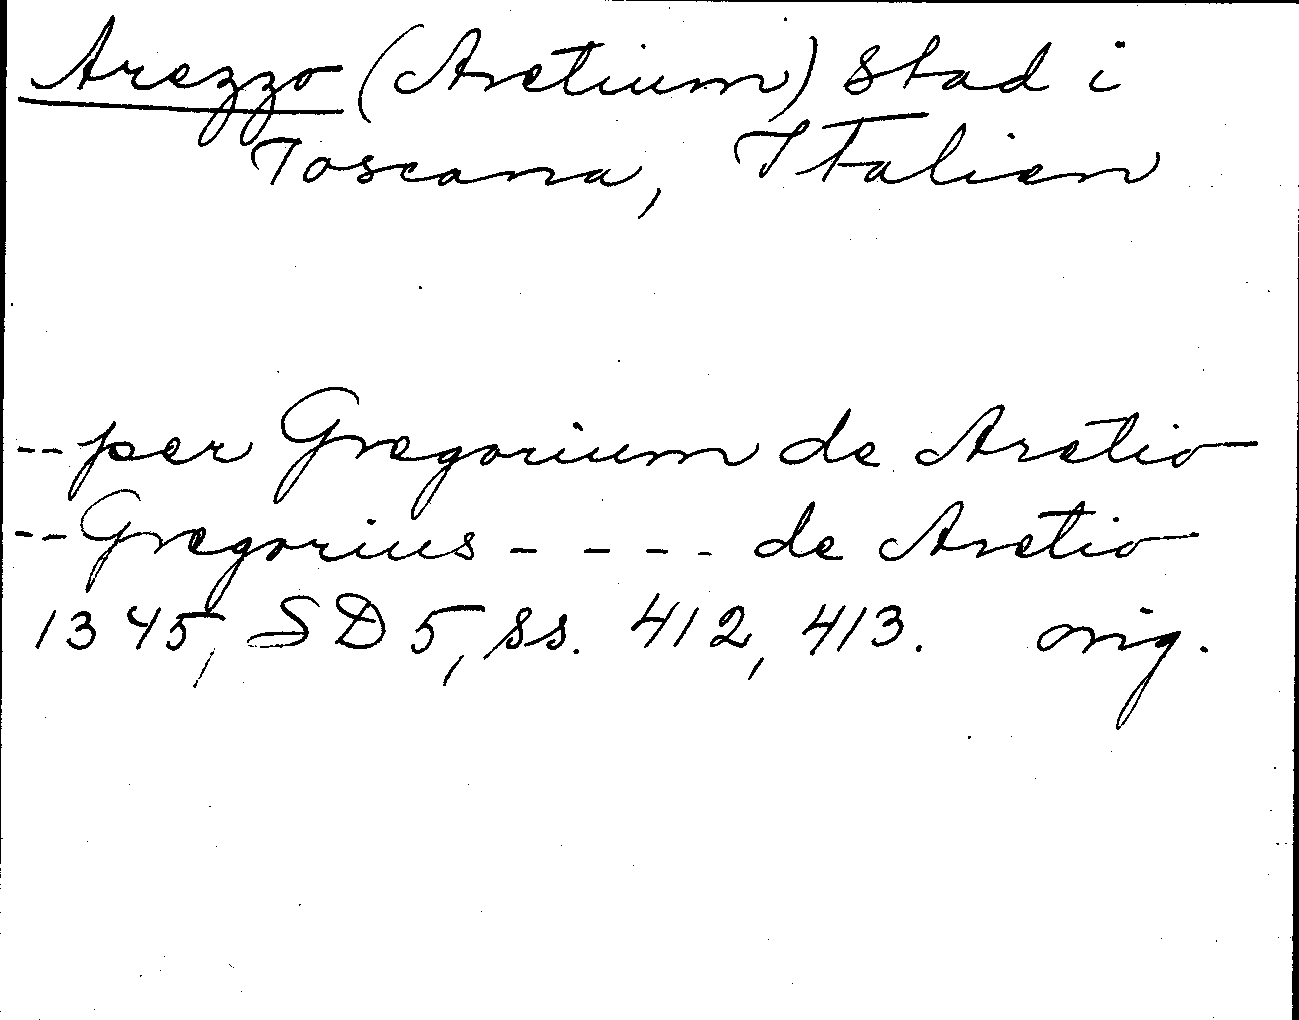 Arezzo (Aretium) stad i
Toscana, Italien
--per Gregorium de Aretio
--Gregorius - - - - de Aretio
1345, SD 5, ss. 412, 413. orig.